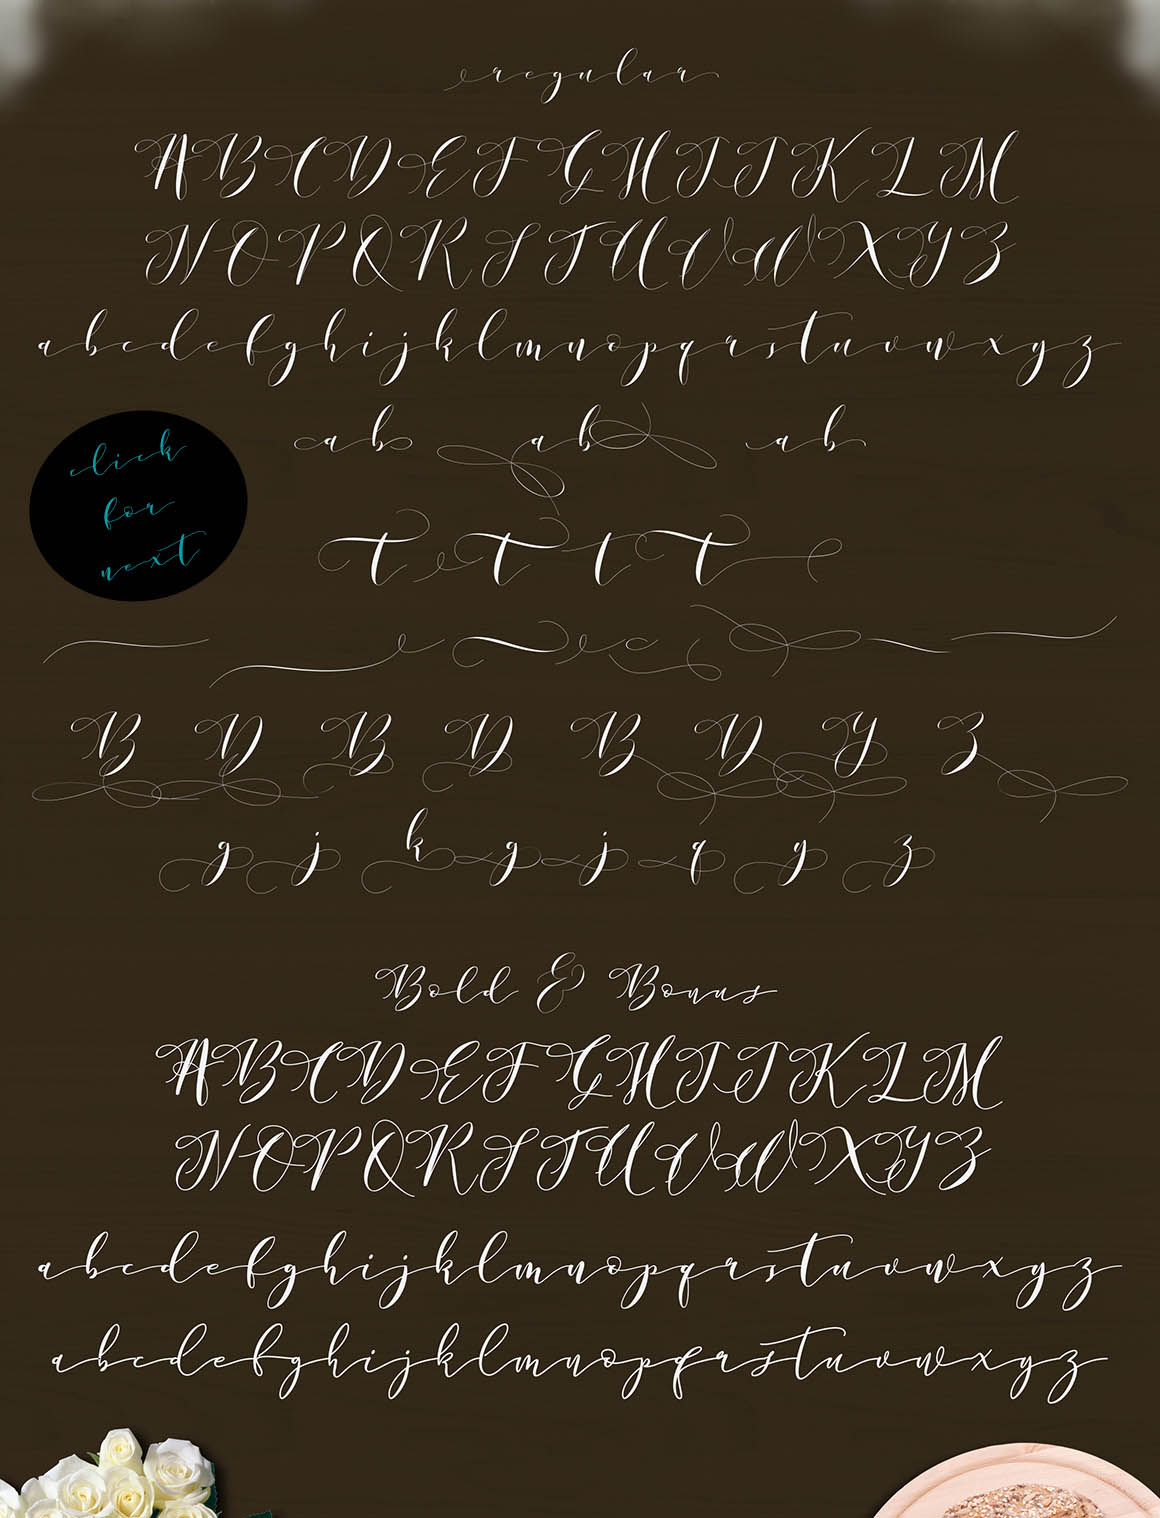 regular
A B C D E F G H I J K L M
N O P Q R S T U V W X Y Z
a b c d e f g h i j k l m n o p q r s t u v w x y z
ab ab ab
click
for
next
t t t t
B D B D B D Y Z
g j k g j q y z
Bold & Bonus
A B C D E F G H I J K L M
N O P Q R S T U V W X Y Z
a b c d e f g h i j k l m n o p q r s t u v w x y z
a b c d e f g h i j k l m n o p q r s t u v w x y z